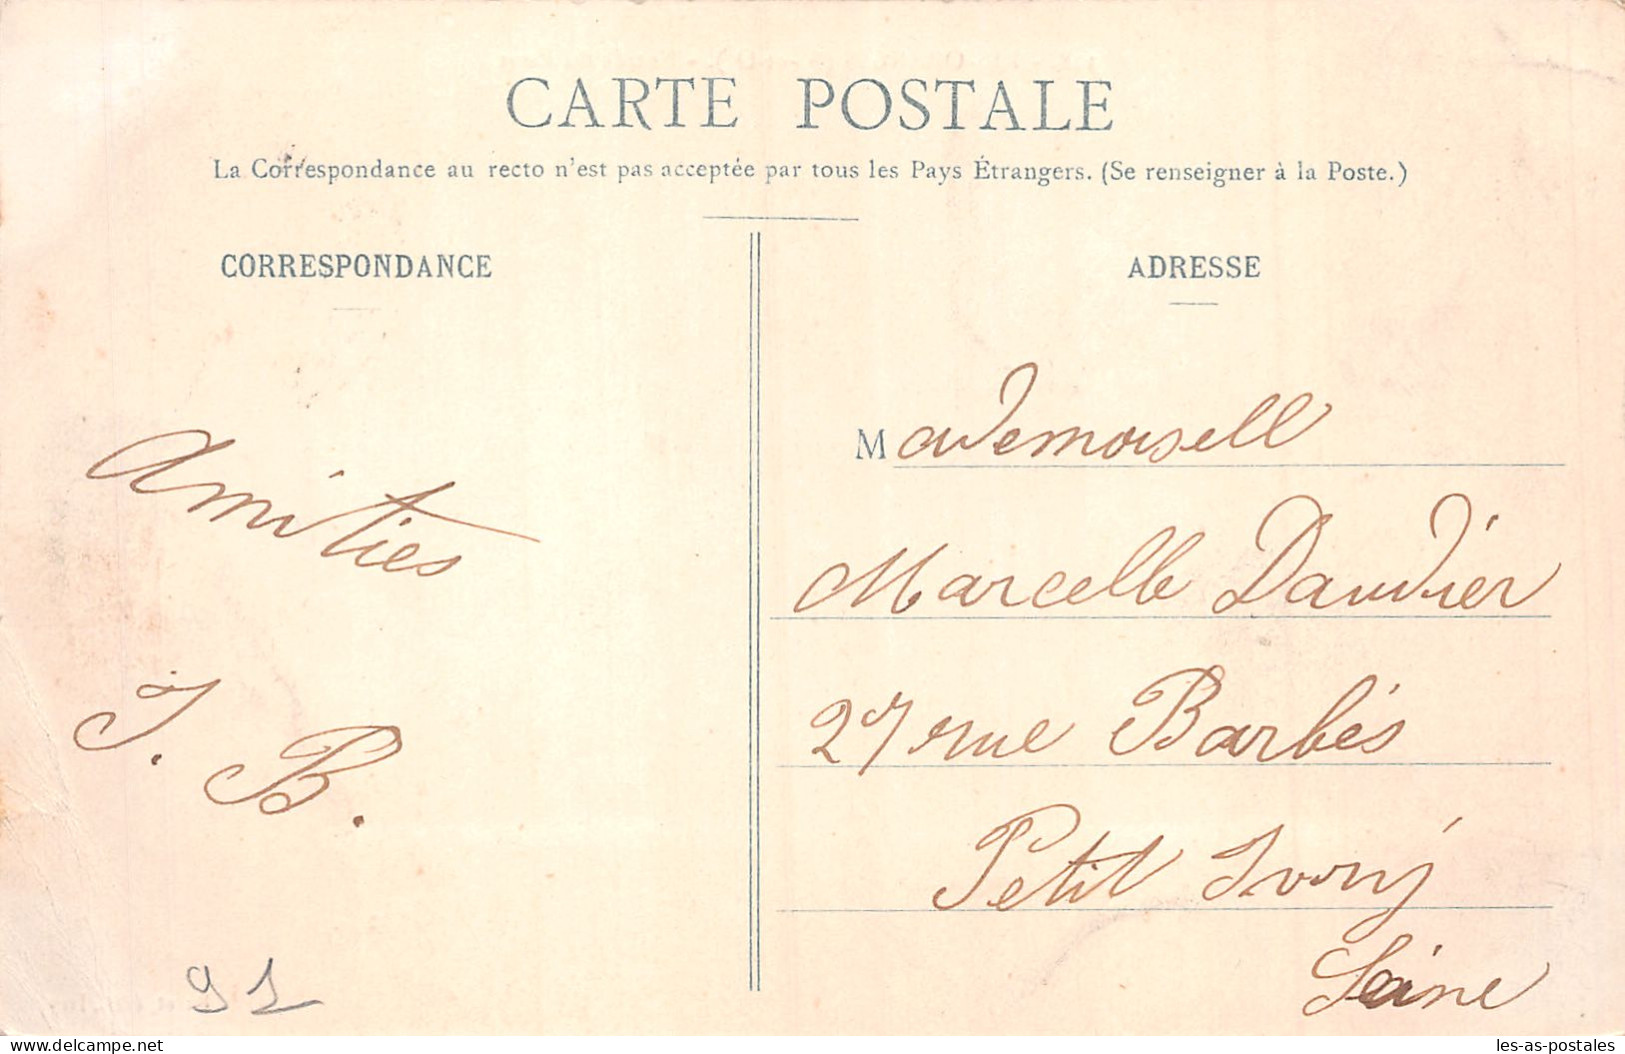 CARTE POSTALE
La Correspondance au recto n'est pas acceptée par tous les Pays Étrangers. (Se renseigner à la Poste.)
CORRESPONDANCE
Amities
J. B.
91
ADRESSE
Mademoisell
Marcelle Daudier
27 rue Barbés
Petit Ivry
Seine
delcampe.net
les-as-postales